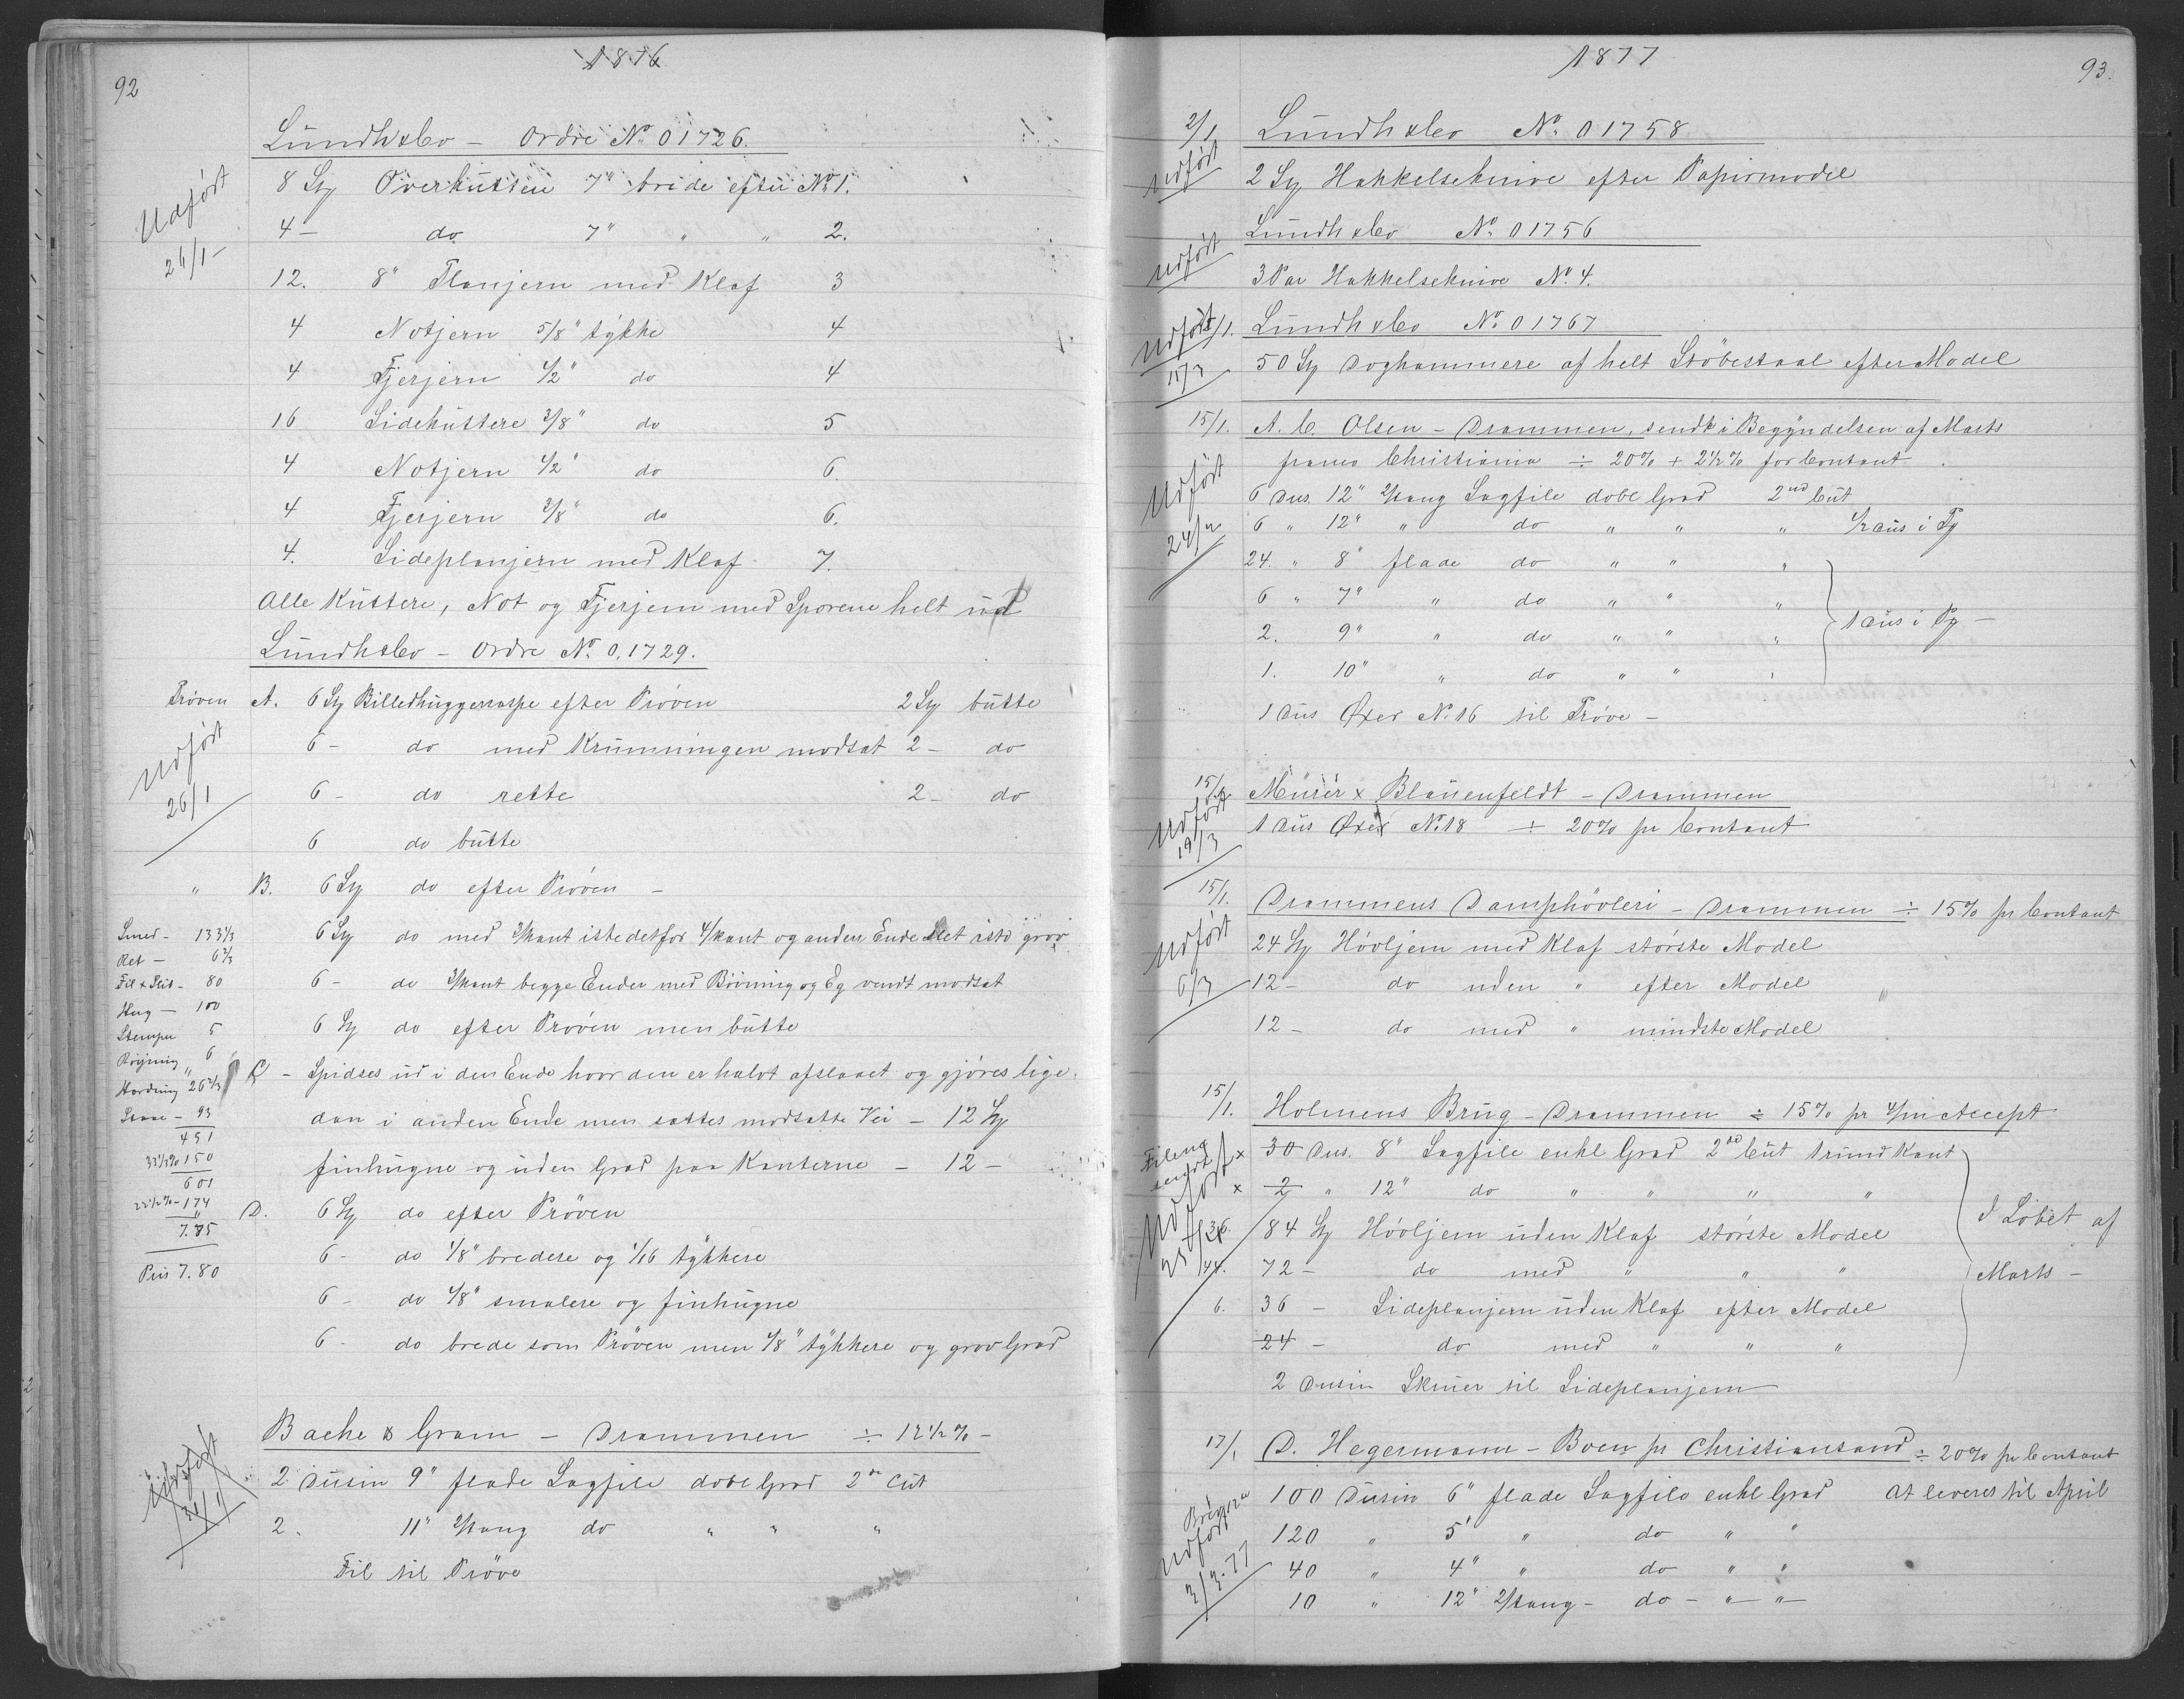 92
1876
Lundh & Co – Ordre No 01726.
Udført 26/1 –
8 St Overkuttere 7" brede efter No 1.
4 – do 7" " " 2.
12. 8" Planjern med Klaf 3
4 Notjern 5/8" tykke 4
4 Fjerjern 1/2" do 4
16 Sidekuttere 3/8" do 5
4 Notjern 1/2" do 6.
4 Fjerjern 3/8" do 6.
4. Sideplanjern med Klaf 7.
Alle Kuttere, Not og Fjerjern med Sporene helt ud
Lundh & Co – Ordre No 0.1729.
Prøven A. 6 St Billedhuggerraspe efter Prøven 2 St butte
Udført 26/1
6 – do med Krumningen modsat 2 – do
6 – do rette 2 – do
6 do butte
" B. 6 St do efter Prøven –
6 St do med 3/kant istedetfor 4/kant og anden Ende Slet isto grov
6 – do 3/kant begge Ender med Bøining og Eg vendt modsat
6 St do efter Prøven men butte
C – Spidses ud i den Ende hvor den er halvt afslaaet og gjøres lige
dan i anden Ende men sættes modsatte Vei – 12 St
finhugne og uden Grad paa Kanterne – 12 –
D. 6 St do efter Prøven
6 – do 1/8" bredere og 1/16 tykkere
6 – do 1/8" smalere og finhugne
6 – do brede som Prøven men 1/8" tykkere og grov Grad
Smed – 133 1/3
Ret – 6 2/3
Fil & Slib – 80
Hug – 100
Stempe 5
Bøyning 6
Hærdning 26 2/3
Staal – 93
451
33 1/3% 150
601
22 1/2% – 174
7.75
Pris 7.80
Bache & Gram – Drammen ÷ 12 1/2 % –
Udført 31/1
2 Dusin 9" flade Sagfile dobl Grad 2de Cut
2. 11" 2/kang do " " "
Fil til Prøve
1877
93.
2/1. Lundh & Co No. 01758
Udført
2 St Hakkelseknive efter Papirmodel
Lundh & Co No. 01756
Udført
3 Par Hakkelseknive No. 4.
/1. Lundh & Co No. 01767
Udført 15/3
50 St Doghammere af helt Støbestaal efter Model
15/1. A. C. Olsen – Drammen, sendt i Begyndelsen af Marts
franco Christiania ÷ 20% + 2 1/2 % for Contant
Udført 24/2
6 Dus. 12" 2/kang Sagfile dobl Grad 2nd Cut
6 " 12" " do " " " 1/2 Dus i Pg
24. " 8" flade do " " "
6 " 7" " do " " "
2. 9" " do " " " 1 Dus i Pg –
1. 10" " do " " "
1 Dus Øxer No. 16 til Prøve –
15/1. Mürer & Blauenfeldt – Drammen
Udført 19/3
1 Dus Øxer No. 18 ÷ 20% pr Contant
15/1. Drammens Damphøvleri – Drammen ÷ 15% pr Contant
Udført 6/3
24 St Høvljern med Klaf største Model
12 – do uden " efter Model
12 – do med " mindste Model
15/1. Holmens Brug – Drammen ÷ 15% pr 4/m Accept
Filene sendt
Udført
x 30 Dus. 8" Sagfile enkl Grad 2nd Cut 1 rund Kant
x 2 " 12" do " " " "
36. 84 St Høvljern uden Klaf største Model
I Løbet af
144. 72 – do med " " "
Marts –
6. 36 – Sideplanjern uden Klaf efter Model
24 – do med " " "
2 Dusin Skruer til Sideplanjern
17/1 D. Hegermann – Boen pr Christiansand ÷ 20% pr Contant
Udført 3/3.77
100 Dusin 6" flade Sagfile enkl Grad at leveres til April
120 " 5" " do " "
40 " 4" " do " "
10 " 12" 2/kang – do – " – " –